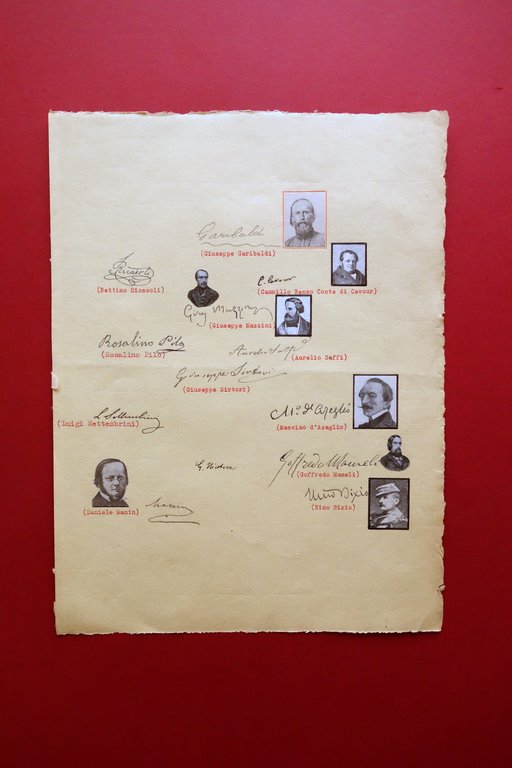 Garibaldi
(Giuseppe Garibaldi)
Ricasoli
(Bettino Ricasoli)
C. Cavour
(Cammillo Benso Conte di Cavour)
Mazzini
(Giuseppe Mazzini)
Rosalino Pilo
(Romalino Pilo)
Aurelio Saffi
(Aurelio Saffi)
Giuseppe Sirtori
(Giuseppe Sirtori)
L. Settembrini
(Luigi Settembrini)
M.o d'Azeglio
(Massimo d'Azeglio)
Goffredo Mameli
(Goffredo Mameli)
Nino Bixio
(Nino Bixio)
(Daniele Manin)
Manin